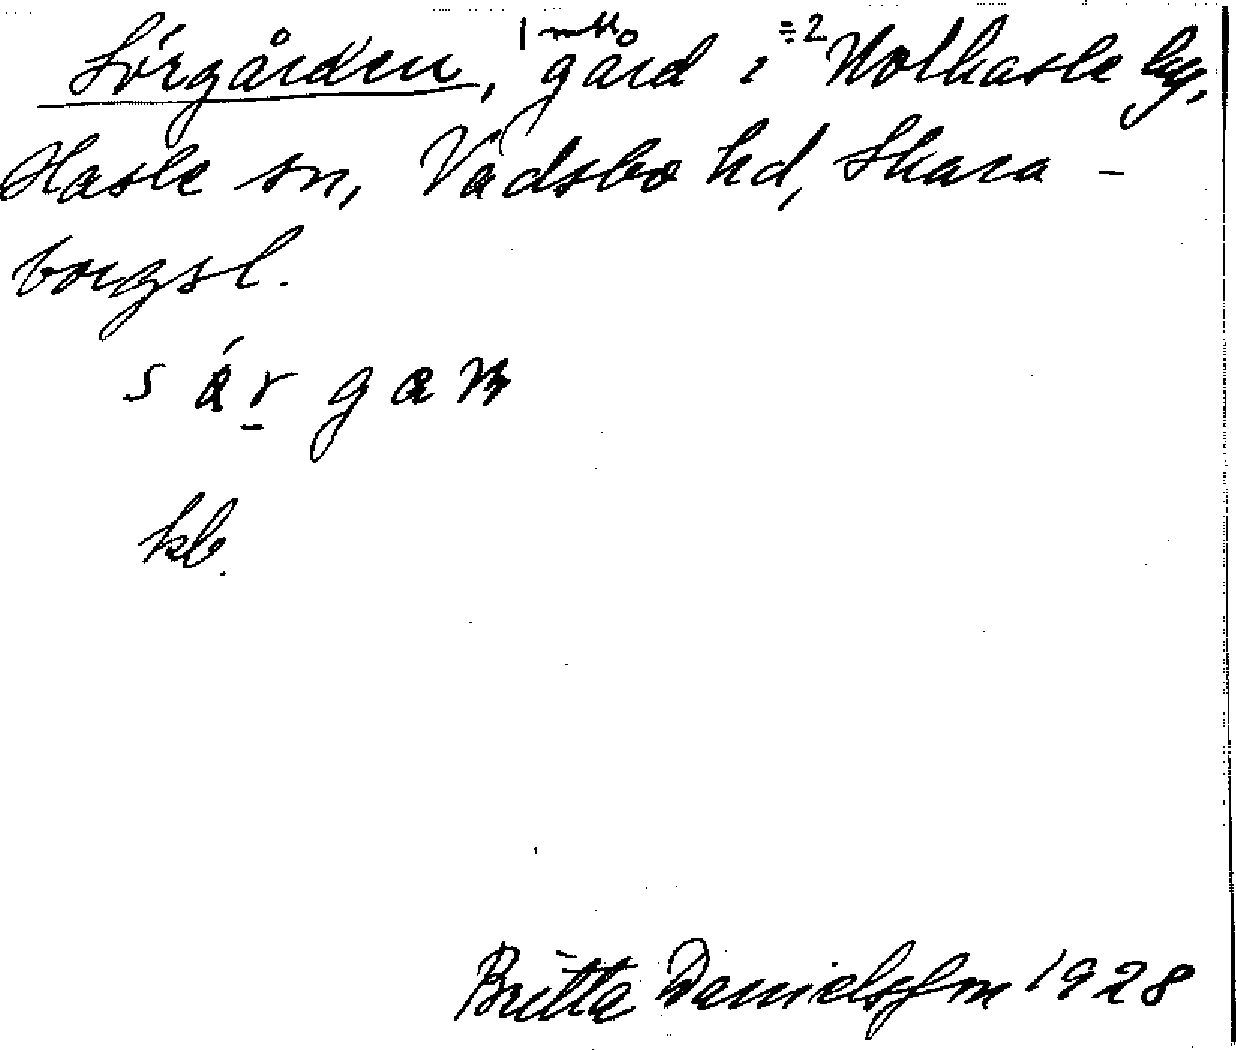 Sörgården, 1 mtl gård i ÷2 Holhasle by,
Hasle sn, Vadsbo hd, Skara-
borgsl.
kb.
Britta Danielsson 1928